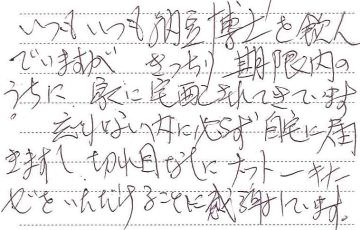 いつもいつも納豆博士を飲ん
でいますが きっちり期限内の
うちに、家に宅配されてきています
。忘れない内に必ず自宅に届
きますし、切れ目なしにナットーキナー
ゼをいただけることに感謝しています。